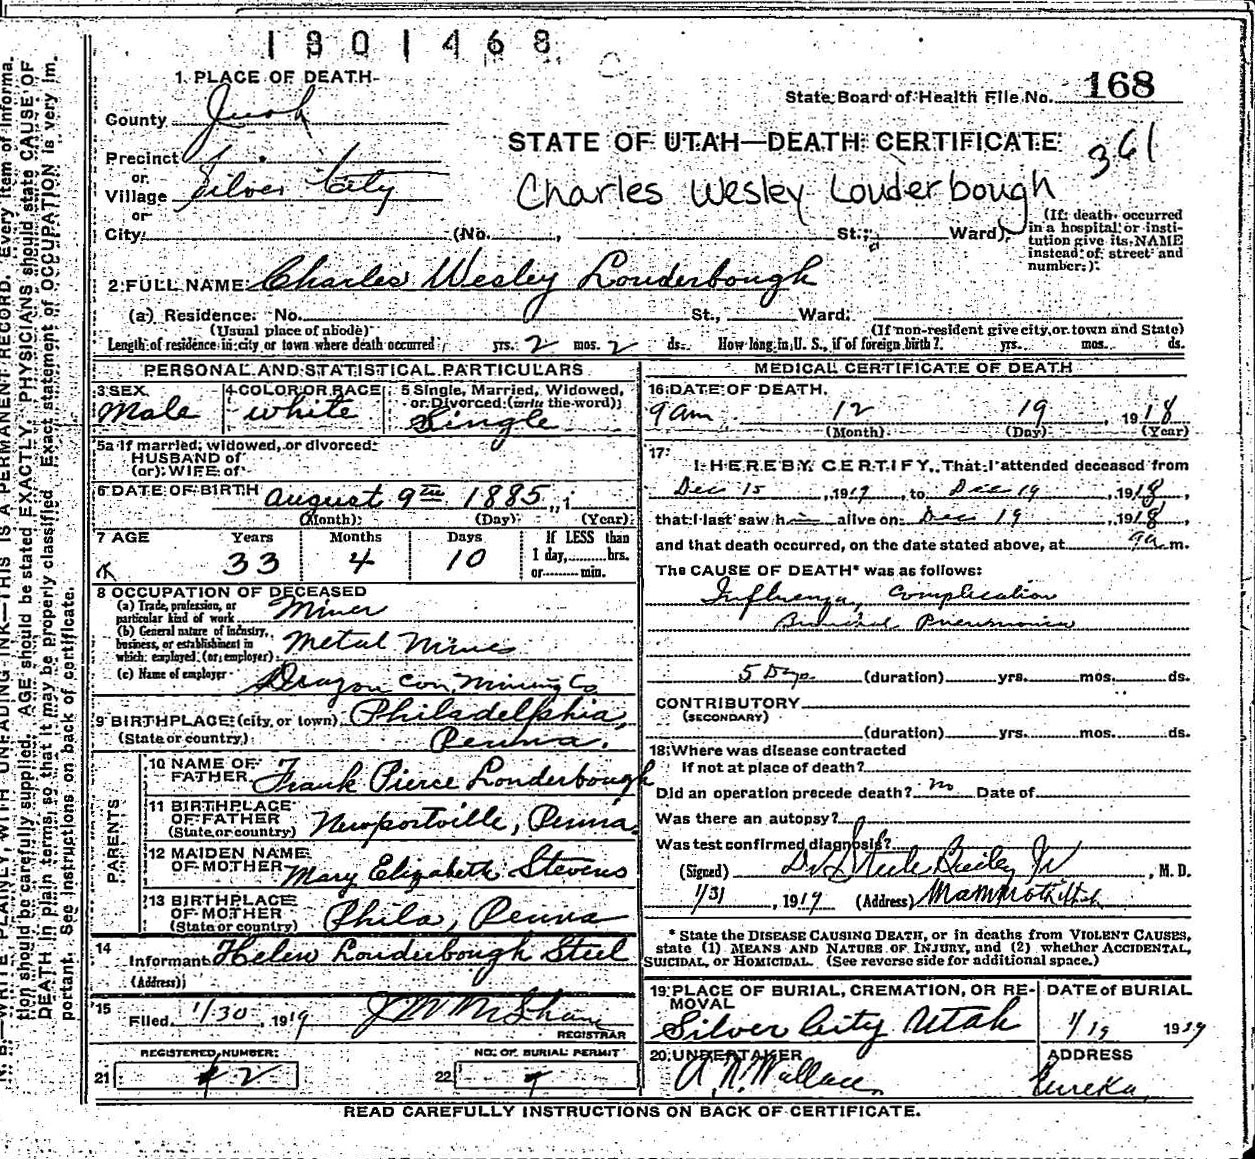 1301468
1. PLACE OF DEATH
State Board of Health File No. 168
County Juab
STATE OF UTAH—DEATH CERTIFICATE
361
Precinct
or
Village Silver City
Charles Wesley Louderbough
or
City (No. , St.; Ward)
(If death occurred in a hospital or institution give its NAME instead of street and number.)
2 FULL NAME Charles Wesley Louderbough
(a) Residence: No. St., Ward.
(Usual place of abode) (If non-resident give city or town and State)
Length of residence in city or town where death occurred yrs. 2 mos. 2 ds. How long in U. S., if of foreign birth? yrs. mos. ds.
PERSONAL AND STATISTICAL PARTICULARS
3 SEX
Male
4 COLOR OR RACE
white
5 Single, Married, Widowed,
or Divorced (write the word)
Single
5a If married, widowed, or divorced
HUSBAND of
(or) WIFE of
6 DATE OF BIRTH august 9th 1885
(Month) (Day) (Year)
7 AGE Years Months Days If LESS than
1 day, hrs.
33 4 10 or min.
8 OCCUPATION OF DECEASED
(a) Trade, profession, or
particular kind of work Miner
(b) General nature of industry,
business, or establishment in
which employed (or employer) Metal Mines
(c) Name of employer Dragon Con. Mining Co
9 BIRTHPLACE (city or town) Philadelphia,
(State or country) Penna.
PARENTS
10 NAME OF
FATHER Frank Pierce Louderbough
11 BIRTHPLACE
OF FATHER
(State or country) Newportville, Penna.
12 MAIDEN NAME
OF MOTHER Mary Elizabeth Stevens
13 BIRTHPLACE
OF MOTHER
(State or country) Phila, Penna
14
Informant Helen Louderbough Steel
(Address)
15
Filed 1/30, 1919 J W McShane
REGISTRAR
REGISTERED NUMBER
21 42
NO. OF BURIAL PERMIT
22
MEDICAL CERTIFICATE OF DEATH
16 DATE OF DEATH.
9 am. 12 19 1918
(Month) (Day) (Year)
17
I HEREBY CERTIFY, That I attended deceased from
Dec 15, 1919, to Dec 19, 1918,
that I last saw him alive on Dec 19, 1918,
and that death occurred, on the date stated above, at 9a m.
The CAUSE OF DEATH* was as follows:
Influenza, Complication
Pneumonia
5 Days (duration) yrs. mos. ds.
CONTRIBUTORY
(SECONDARY)
(duration) yrs. mos. ds.
18 Where was disease contracted
if not at place of death?
Did an operation precede death? no Date of
Was there an autopsy?
Was test confirmed diagnosis?
(Signed) Dr Steele Bailey Jr, M. D.
1/31, 1919 (Address) Mammoth Utah
* State the DISEASE CAUSING DEATH, or in deaths from VIOLENT CAUSES,
state (1) MEANS AND NATURE OF INJURY, and (2) whether ACCIDENTAL,
SUICIDAL, or HOMICIDAL. (See reverse side for additional space.)
19 PLACE OF BURIAL, CREMATION, OR RE-
MOVAL
Silver City Utah
DATE of BURIAL
1/19 1919
20 UNDERTAKER
A. N. Wallace
ADDRESS
Eureka
READ CAREFULLY INSTRUCTIONS ON BACK OF CERTIFICATE.
WRITE PLAINLY, WITH UNFADING INK—THIS IS A PERMANENT RECORD. Every item of informa-
tion should be carefully supplied. AGE should be stated EXACTLY. PHYSICIANS should state CAUSE OF
DEATH in plain terms, so that it may be properly classified. Exact statement of OCCUPATION is very im-
portant. See instructions on back of certificate.